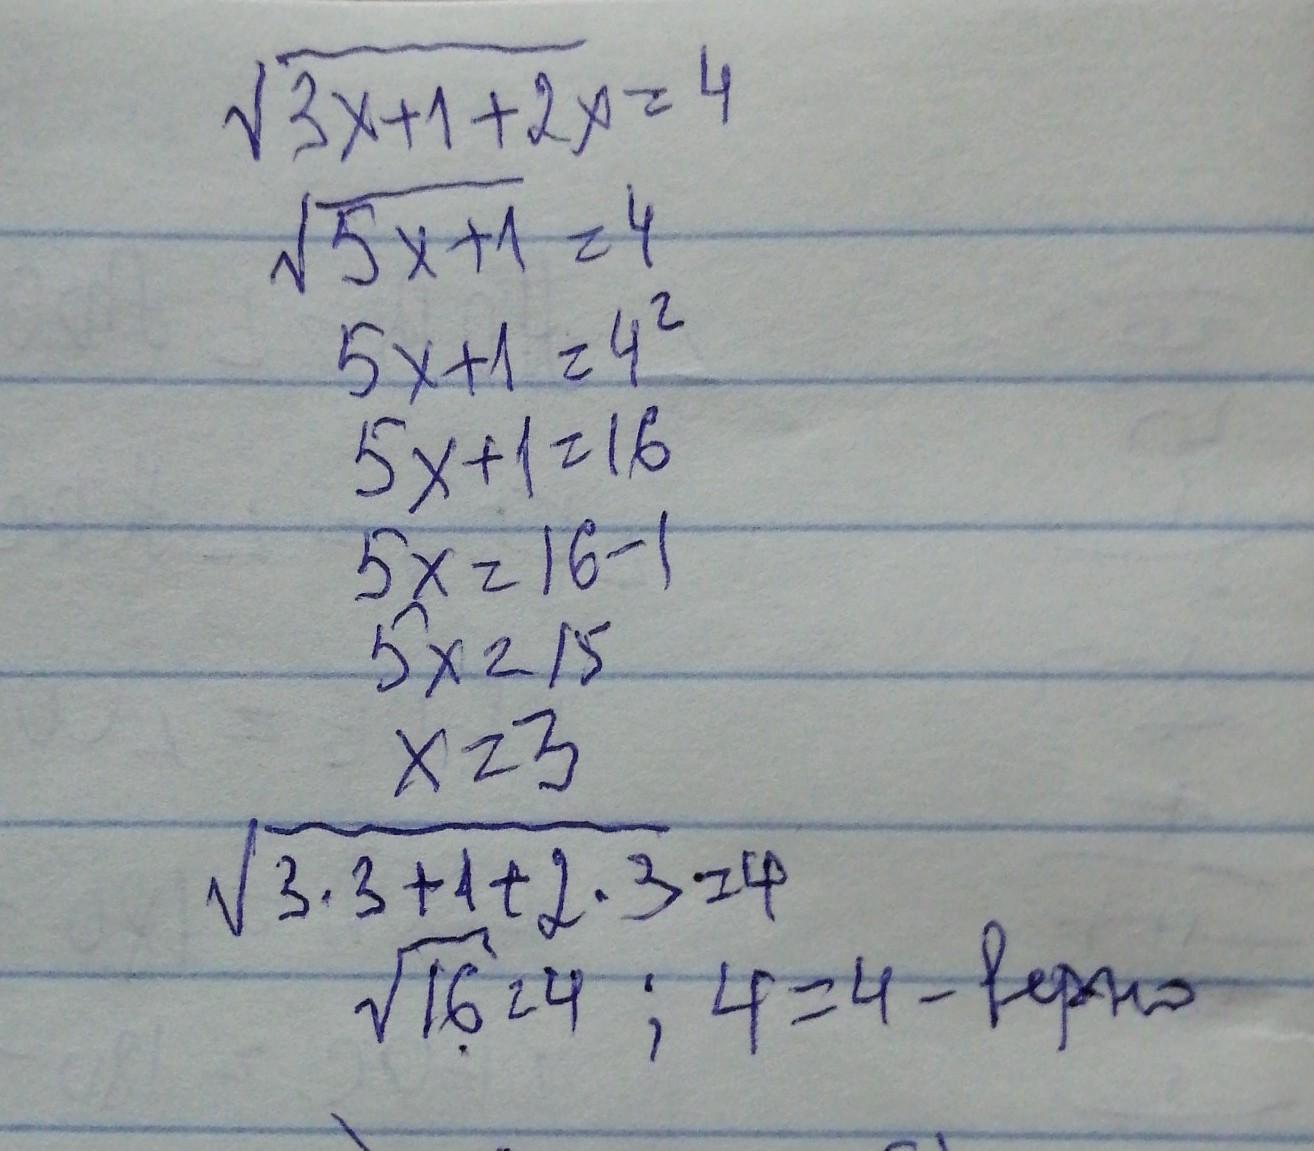 √3x+1+2x=4
√5x+1=4
5x+1=4²
5x+1=16
5x=16-1
5x=15
x=3
√3·3+1+2·3=4
√16=4 ; 4=4 - верно